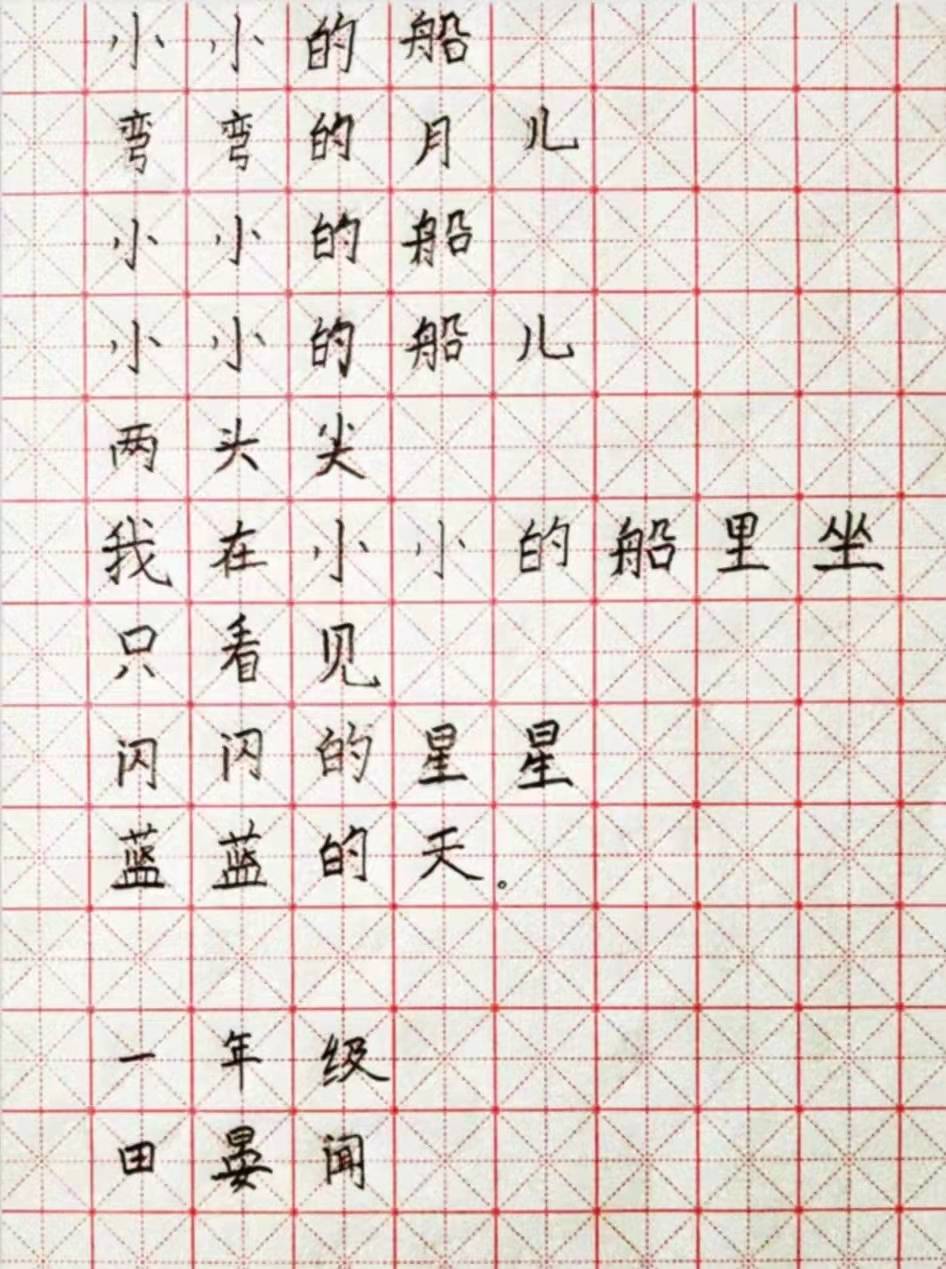 小小的船
弯弯的月儿
小小的船
小小的船儿
两头尖
我在小小的船里坐
只看见
闪闪的星星
蓝蓝的天。
一年级
田晏闻